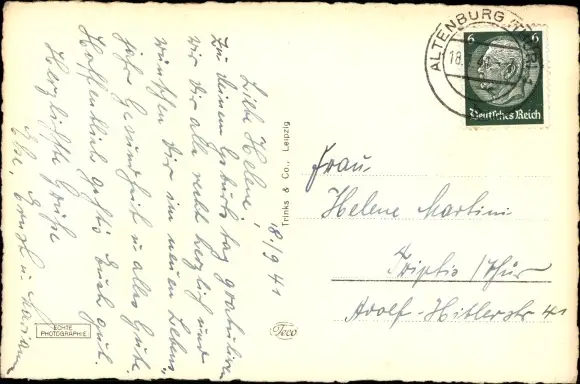 18./9 41
Liebe Helene,
Zu deinem Geburtstag gratulieren
wir Dir alle recht herzlich und
wünschen Dir im neuen Lebens-
jahr Gesundheit u. alles Gute.
Hoffentlich gehts Euch gut.
Herzliche Grüße
ECHTE
PHOTOGRAPHIE
Trinks & Co., Leipzig
Teco
ALTENBURG
18.
6
6
Deutsches Reich
Frau
Helene Martini
Triptis /Thür
Adolf-Hitlerstr 41